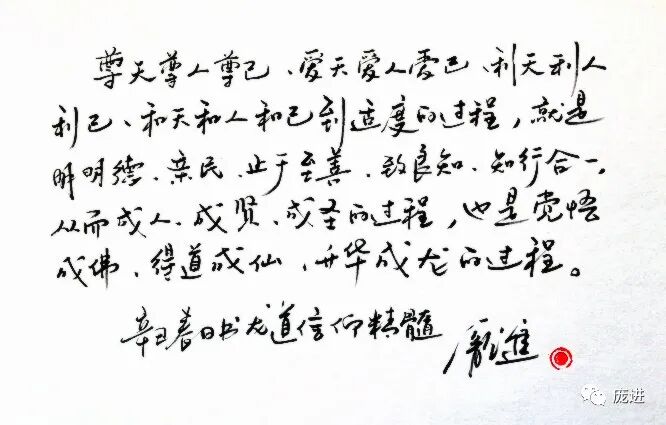 尊天尊人尊己、爱天爱人爱己、利天利人
利己、和天和人和己到适度的过程，就是
明明德、亲民、止于至善、致良知、知行合一，
从而成人、成贤、成圣的过程，也是觉悟
成佛、得道成仙、升华成龙的过程。
辛丑春日书龙道信仰精髓 庞進
庞进